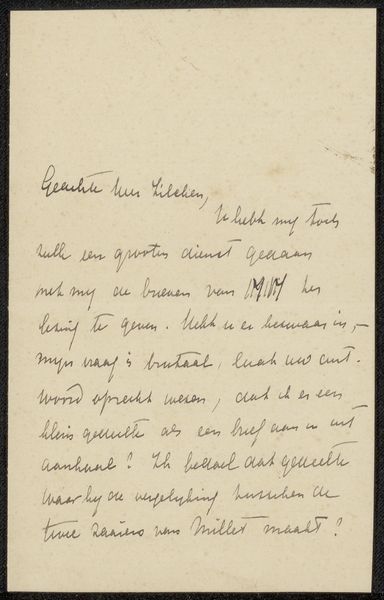 Geachte Heer Zilcken,
U hebt mij toch
zulk een grooten dienst gedaan
met mij de brieven van MM ter
lezing te geven. Hebt u er bezwaar in, –
mijn vraag is brutaal, laat uw ant-
woord oprecht wezen, dat ik er een
klein gedeelte als een brief aan u uit
aanhaal? Ik bedoel dat gedeelte
waar hij de vergelijking tusschen de
twee zaaiers van Millet maakt?